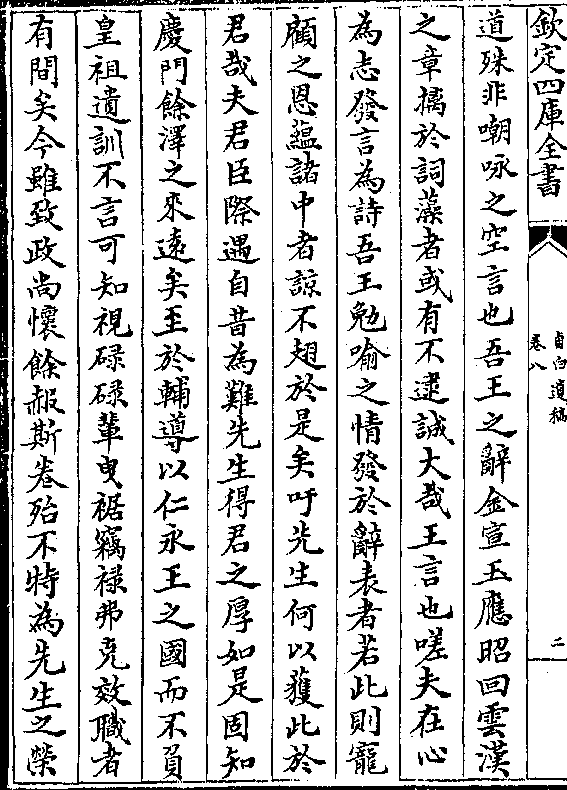 欽定四庫全書
卣白遺稿
卷八
二
道殊非嘲咏之空言也吾王之辭金宣玉應昭回雲漢
之章摛於詞藻者或有不逮誠大哉王言也嗟夫在心
為志發言為詩吾王勉喻之情發於辭表者若此則寵
顧之恩蘊諸中者諒不翅於是矣吁先生何以獲此於
君哉夫君臣際遇自昔為難先生得君之厚如是固知
慶門餘澤之來遠矣王於輔導以仁永王之國而不負
皇祖遺訓不言可知視碌碌輩曳裾竊祿弗克效職者
有間矣今雖致政尚懷餘赧斯卷殆不特為先生之榮